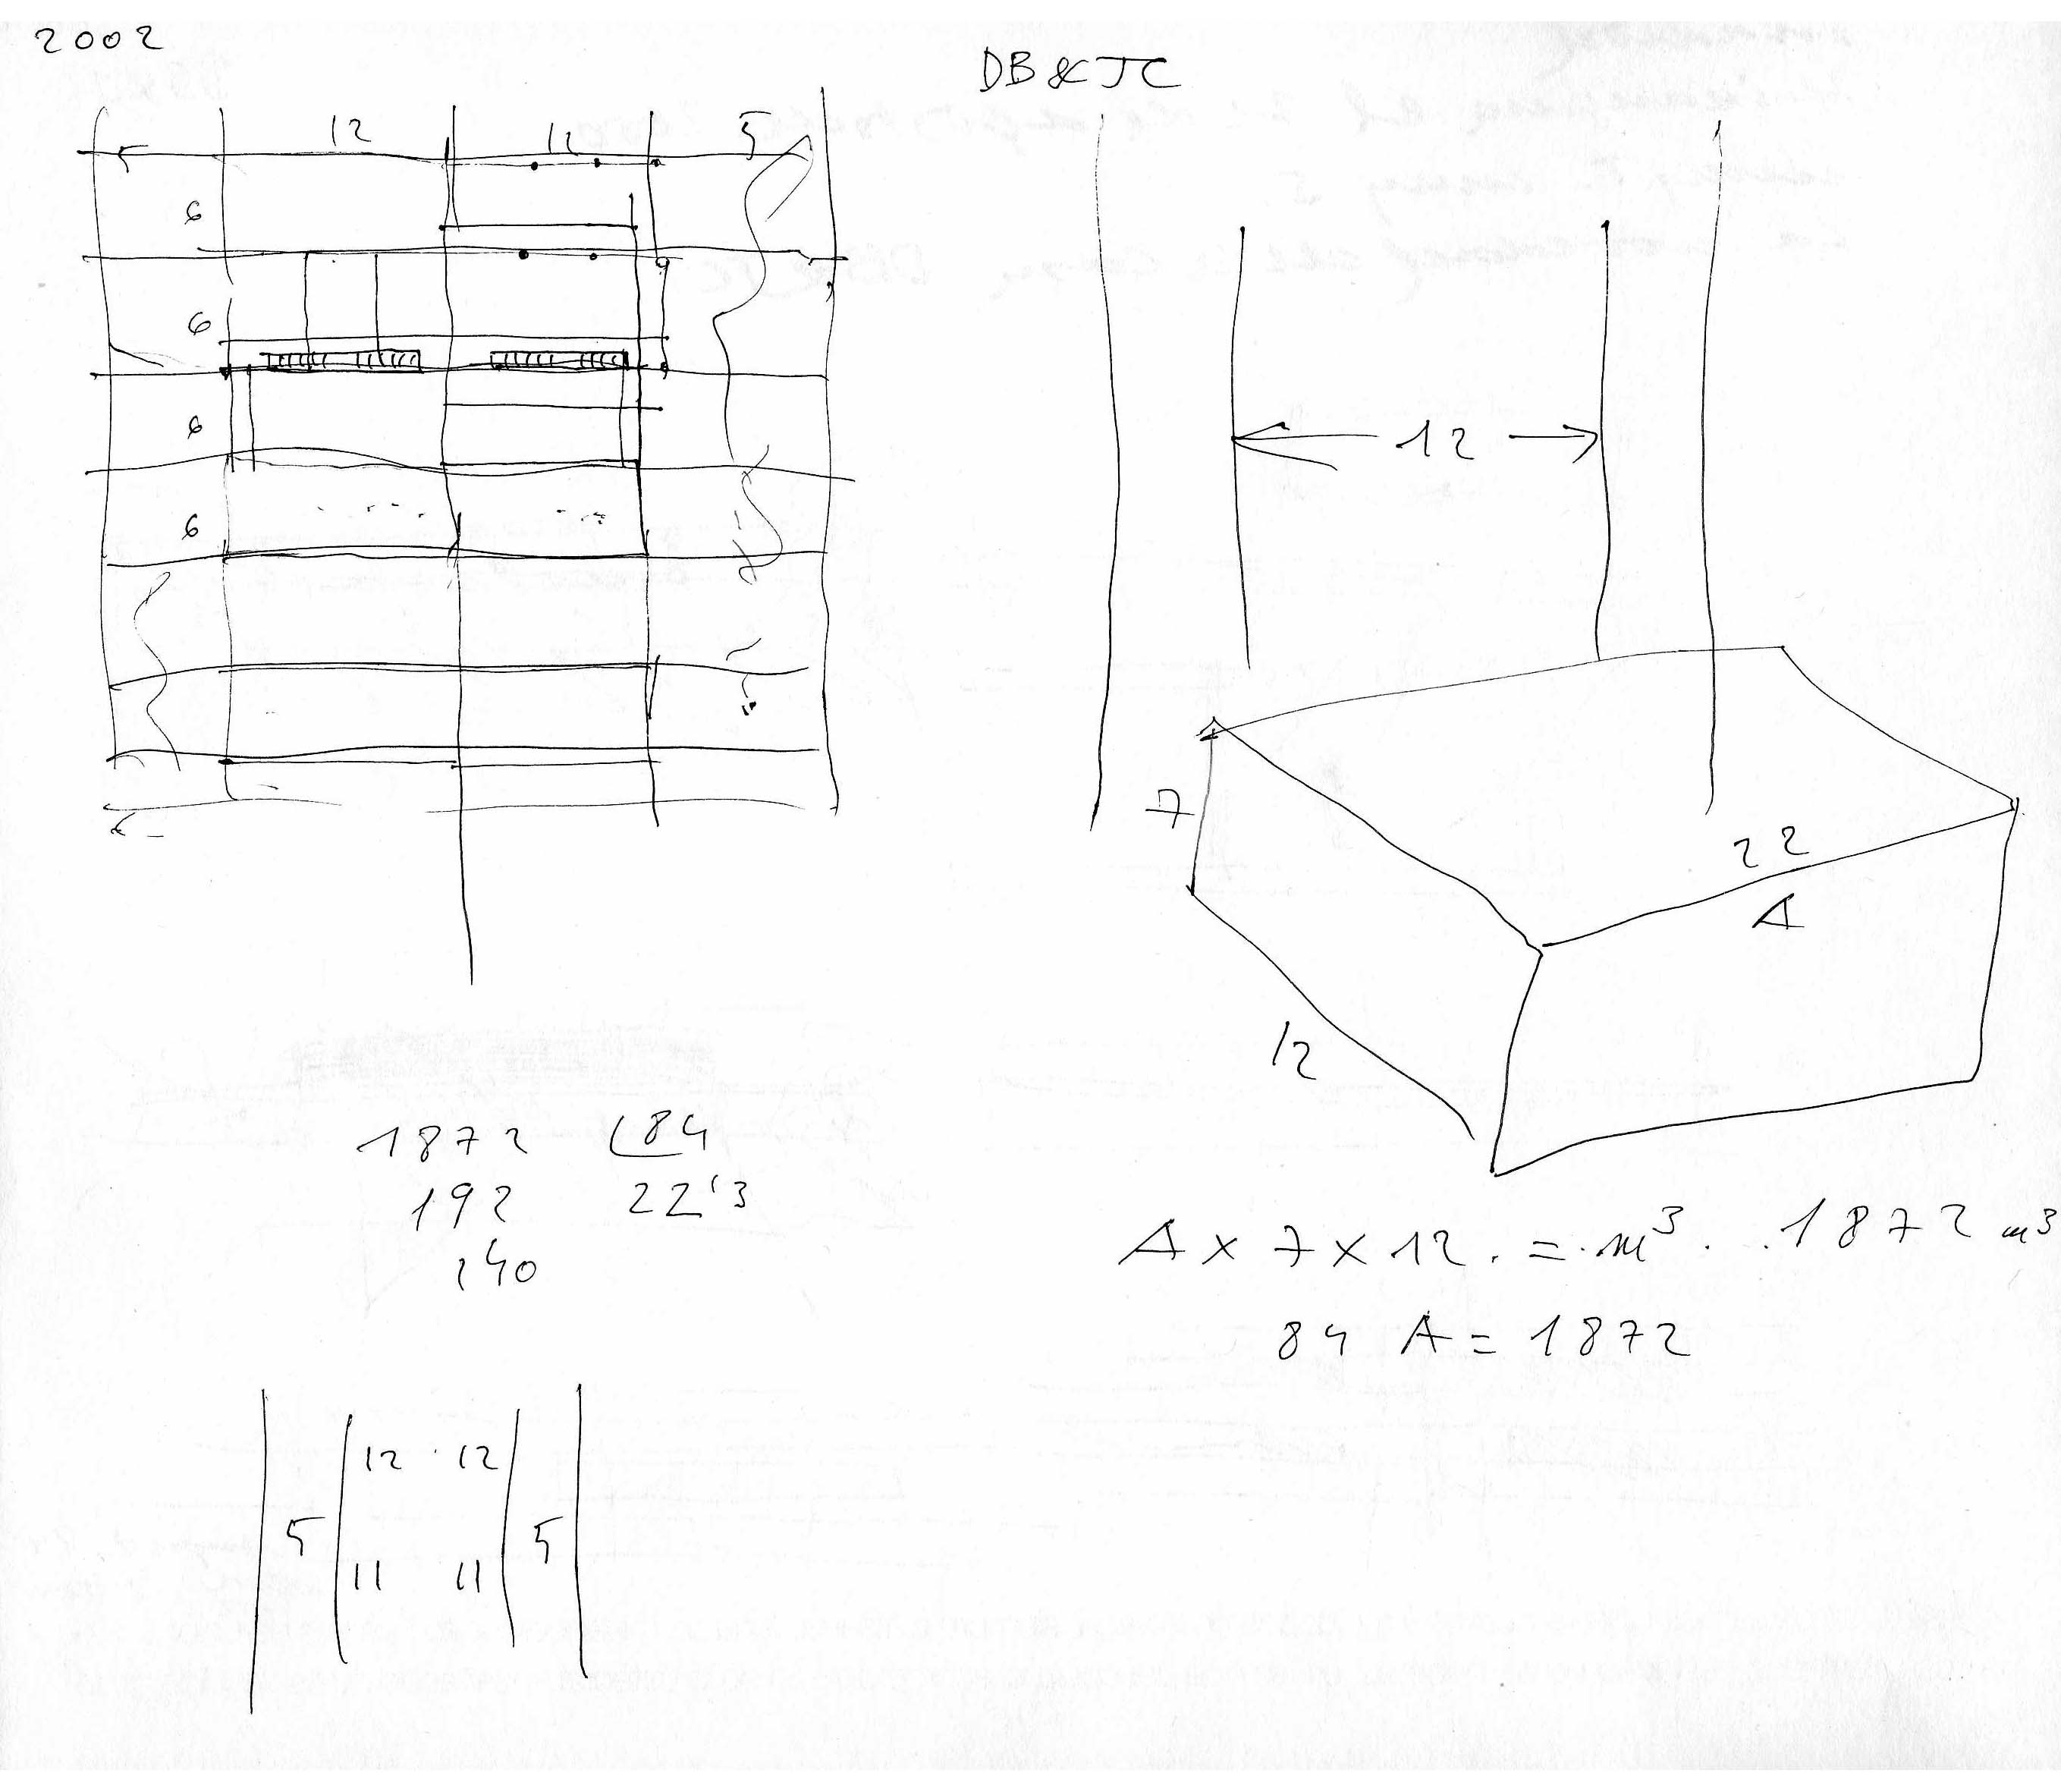 2002
DB & JC
12 11 5
6
6
6
6
12
7
22
A
12
1872 84
192 22'3
240
A x 7 x 12 . = . m³ . . 1872 m³
84 A = 1872
12 12
5 5
11 11